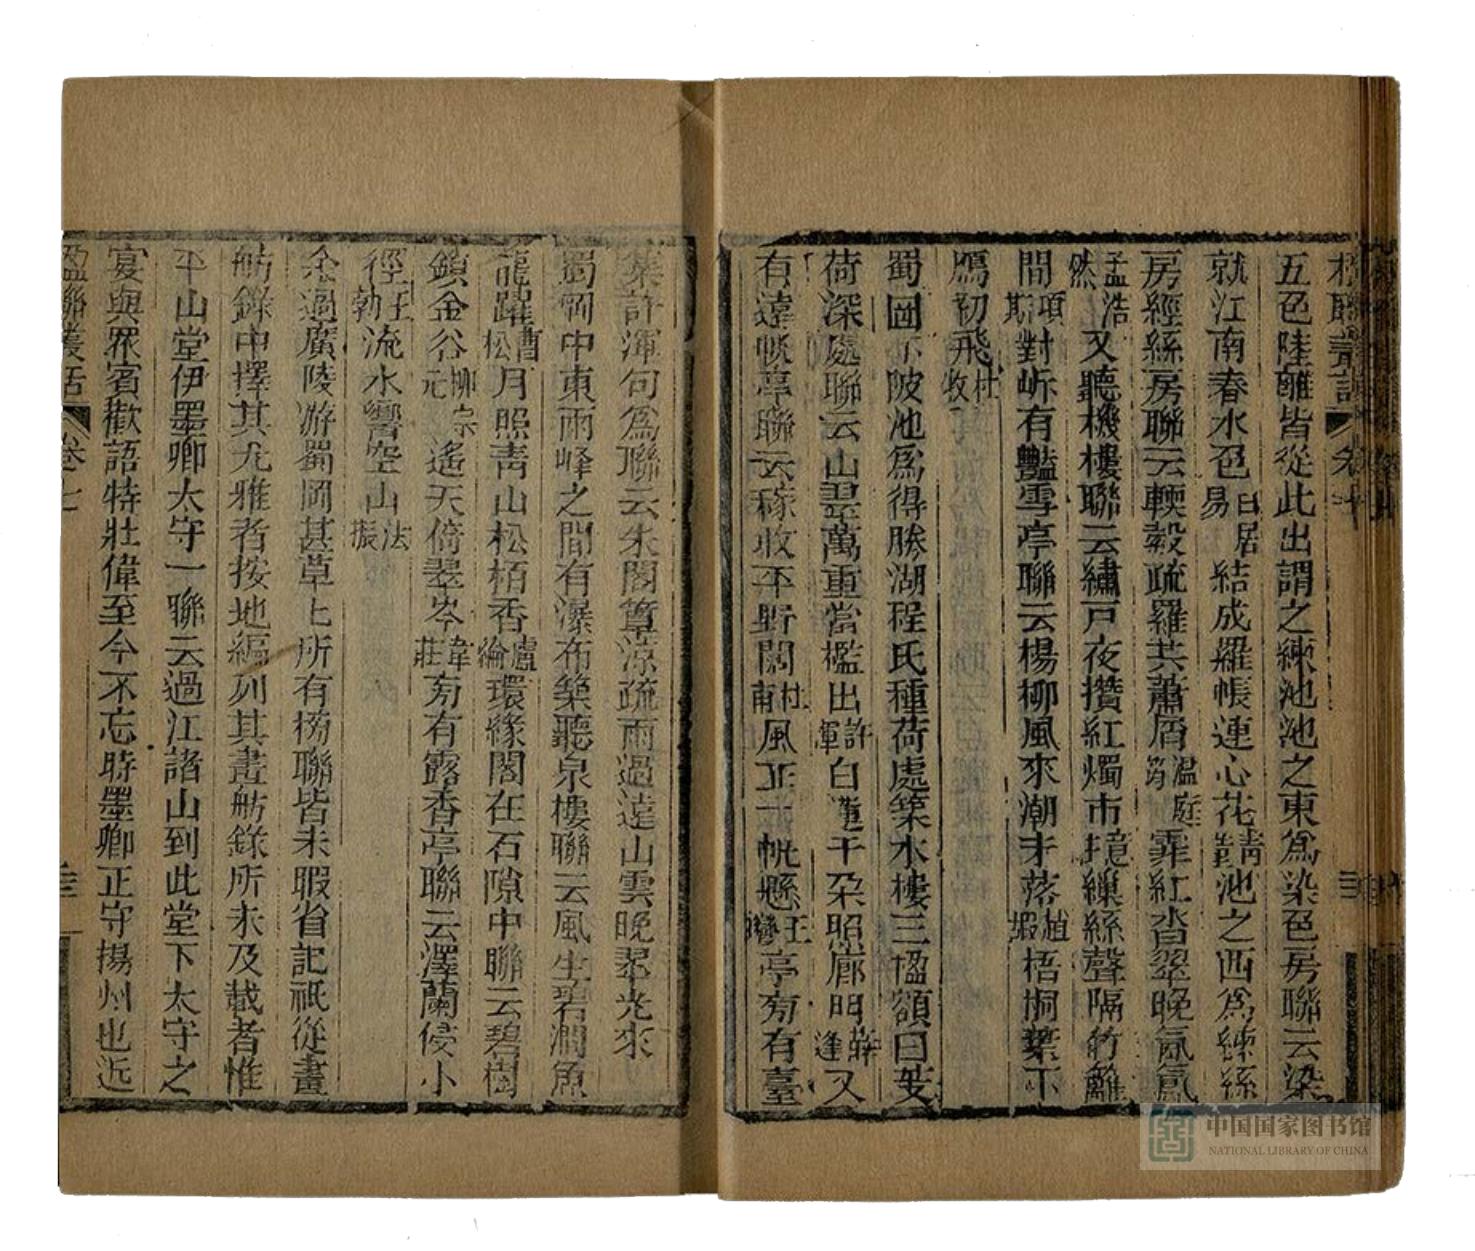 楹聯叢話 卷七
五色陸離皆從此出謂之練池池之東爲染色房聯云染
就江南春水色白居易結成羅帳連心花青童池之西爲練絲
房經絲房聯云輭縠疏羅共蕭屑溫庭筠霏紅沓翠晚氤氳
孟浩然又聽機樓聯云繡戸夜攢紅燭市境繅絲聲隔竹籬
間項斯對岍有豔雪亭聯云楊柳風來潮才落趙嘏梧桐葉下
鴈初飛杜牧
蜀岡下陂池爲得勝湖程氏種荷處築水樓三楹額曰芰
荷深處聯云山翠萬重當檻出許渾白蓮千朶照廊明薛逢又
有遠帆亭聯云稼收平野闊杜甫風正一帆懸王灣亭旁有臺
集許渾句爲聯云朱閣簟涼疏雨過遠山雲晚翠光來
蜀岡中東兩峰之間有瀑布築聽泉樓聯云風生碧澗魚
龍躍曹松月照青山松栢香盧綸環緣閣在石隙中聯云碧樹
鎖金谷柳宗元遙天倚翠岑韋莊旁有露香亭聯云澤蘭侵小
徑王勃流水響空山法振
余過廣陵游蜀岡甚草上所有榜聯皆未暇省記祇從畫
舫錄中擇其尤雅者按地編列其畫舫錄所未及載者惟
平山堂伊墨卿太守一聯云過江諸山到此堂下太守之
宴與眾賓歡語特壯偉至今不忘時墨卿正守揚州也近
楹聯叢話 卷七 三
中国国家图书馆
NATIONAL LIBRARY OF CHINA